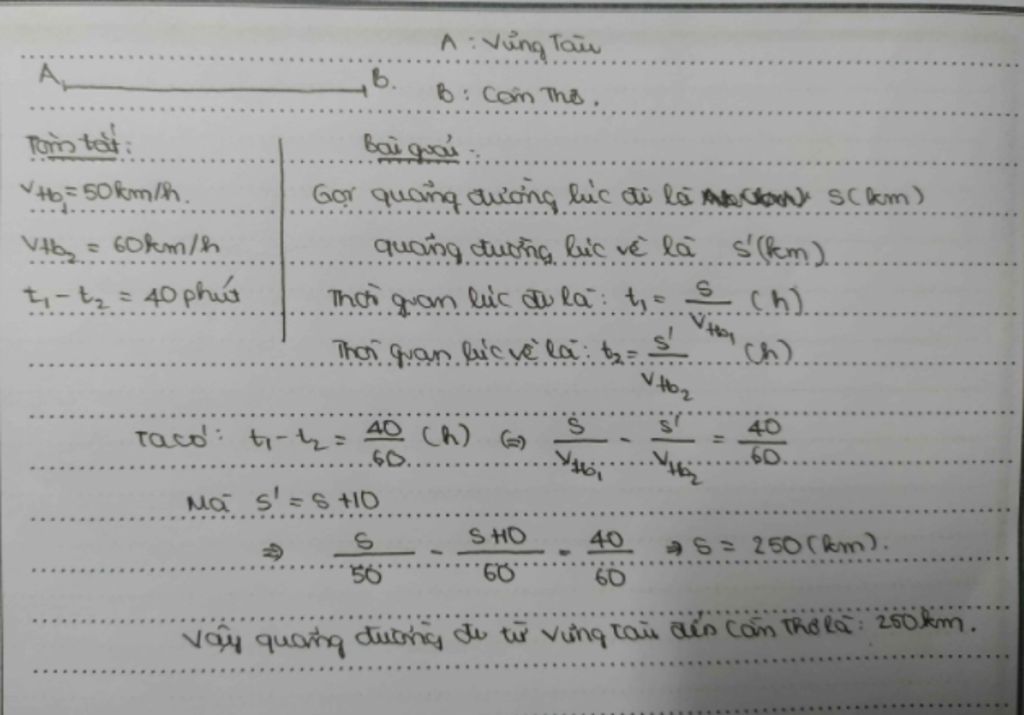 A : Vũng Tàu
A B.
B : Cần Thơ.
Tóm tắt:
Bài giải:
Vtb1 = 50km/h.
Gọi quãng đường lúc đi là S(km)
Vtb2 = 60km/h
quãng đường lúc về là S'(km)
t1 - t2 = 40 phút
Thời gian lúc đi là: t1 = S/Vtb1 (h)
Thời gian lúc về là: t2 = S'/Vtb2 (h)
Ta có: t1 - t2 = 40/60 (h) ⇔ S/Vtb1 - S'/Vtb2 = 40/60
Mà S' = S + 10
⇒ S/50 - S+10/60 = 40/60 ⇒ S = 250(km).
Vậy quãng đường đi từ Vũng Tàu đến Cần Thơ là: 250km.